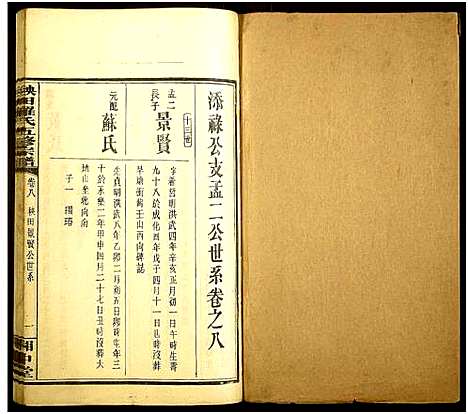 添祿公支孟二公世系卷之八
十三世
孟二長子
景賢
字希哲明洪武四年辛亥正月初一日午時生壽
九十八於成化四年戊子四月十一日午時沒葬
山西向碑誌
元配
蘇氏
貞明洪武八年乙卯二月初五日卯時生年三
十於永樂二年甲申四月二十七日丑時沒葬大
山坐北向南
子一
秧田羅氏五修宗譜
卷八
秧田景賢公世系
一